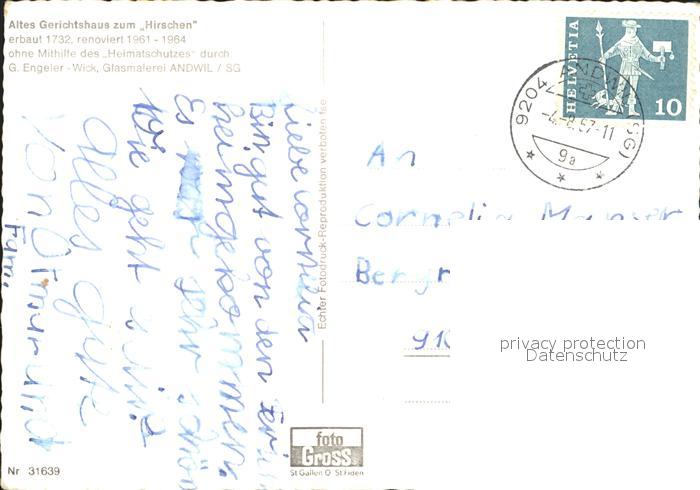 Altes Gerichtshaus zum „Hirschen"
erbaut 1732, renoviert 1961 - 1964
ohne Mithilfe des „Heimatschutzes" durch
G. Engeler - Wick, Glasmalerei ANDWIL / SG
HELVETIA
10
9204 ANDWIL (SG)
9a
Liebe Cornelia
Bin gut von den Feri
heimgekommen.
Es war sehr schön
Wie geht es Dir?
alles gute
von
und
Fam.
Echter Fotodruck-Reproduktion verboten
An
Cornelia Manser
910
privacy protection
Datenschutz
foto
Gross
St Gallen O St Fiden
Nr 31639